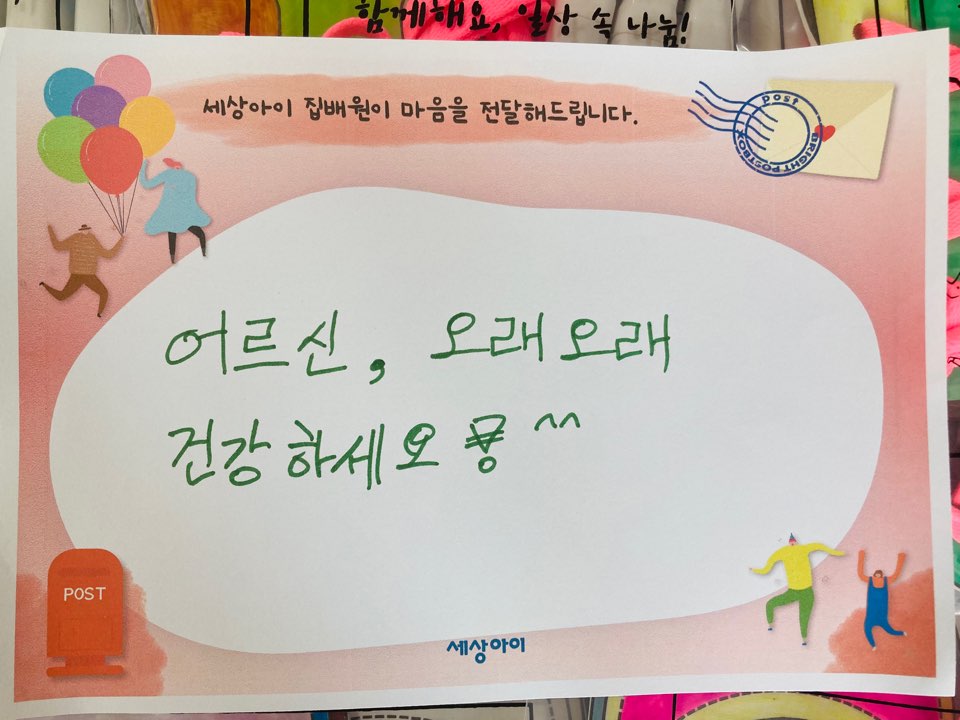 함께해요, 일상 속 나눔!
세상아이 집배원이 마음을 전달해드립니다.
post
BRIGHT POSTBOX
어르신, 오래오래
건강하세요 ^^
POST
세상아이